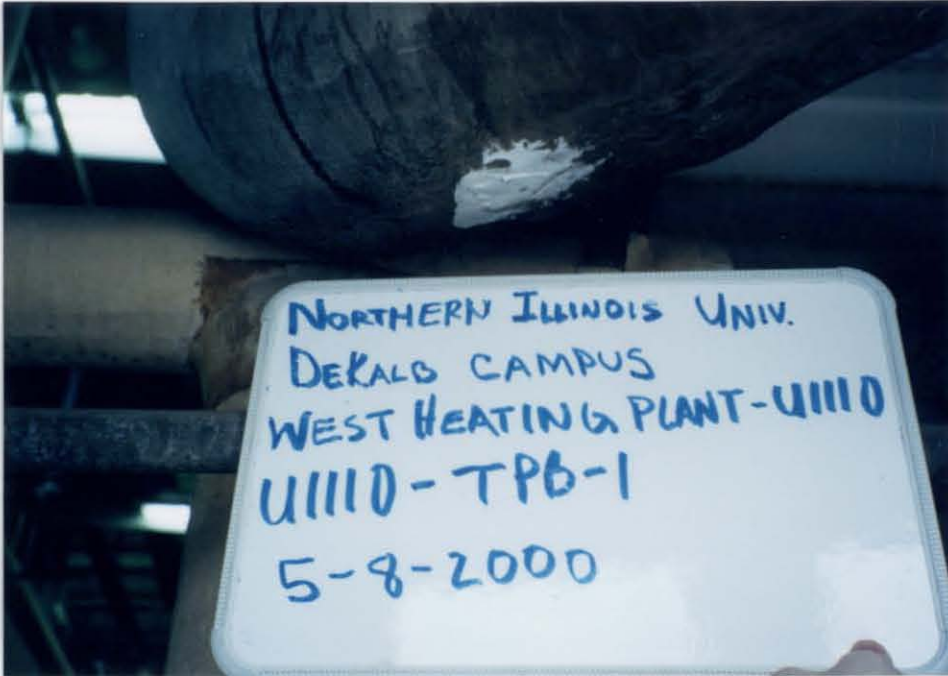 NORTHERN ILLINOIS UNIV.
DEKALB CAMPUS
WEST HEATING PLANT-U1110
U1110-TPB-1
5-8-2000